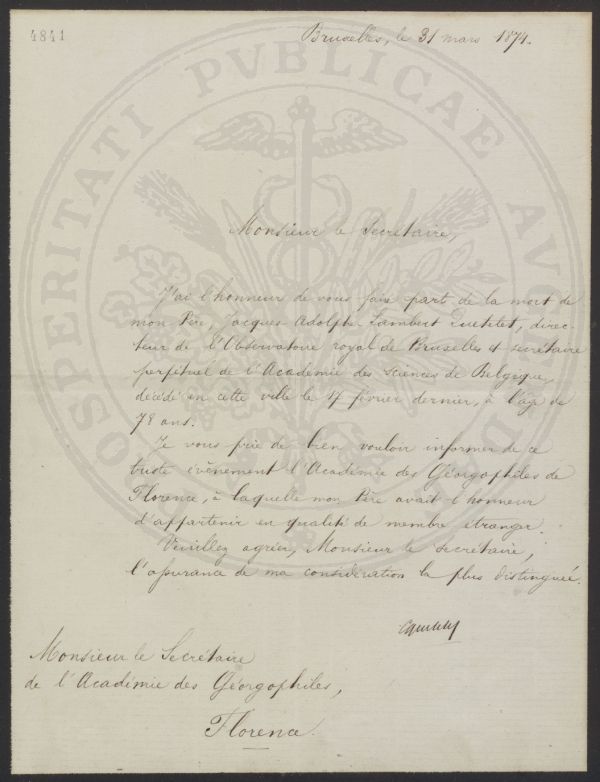 4841
Bruxelles, le 31 mars 1874.
PROSPERITATI PVBLICAE AVGENDAE
Monsieur le Secrétaire,
J'ai l'honneur de vous faire part de la mort de
mon Père, Jacques Adolphe Lambert Quetelet, direc-
teur de l'Observatoire royal de Bruxelles et secrétaire
perpétuel de l'Académie des sciences de Belgique,
décédé en cette ville le 17 février dernier, à l'âge de
78 ans.
Je vous prie de bien vouloir informer de ce
triste événement l'Académie des Géorgophiles de
Florence, à laquelle mon Père avait l'honneur
d'appartenir en qualité de membre étranger.
Veuillez agréer, Monsieur le Secrétaire,
l'assurance de ma considération la plus distinguée.
Monsieur le Secrétaire
de l'Académie des Géorgophiles,
Florence.